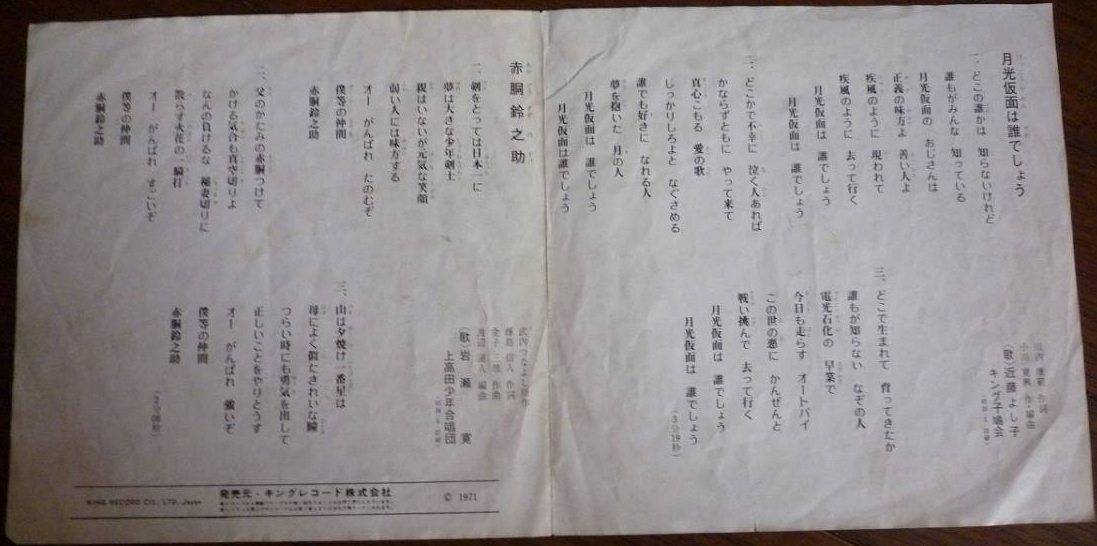 月光仮面は誰でしょう
川内 康範 作詞
小川 寛興 作・編曲
(歌)近藤よし子
キング子鳩会
一、どこの誰かは 知らないけれど
誰もがみんな 知っている
月光仮面の おじさんは
正義の味方よ 善い人よ
疾風のように 現われて
疾風のように 去って行く
月光仮面は 誰でしょう
月光仮面は 誰でしょう
二、どこかで不幸に 泣く人あれば
かならずともに やって来て
真心こもる 愛の歌
しっかりしろよと なぐさめる
誰でも好きに なれる人
夢を抱いた 月の人
月光仮面は 誰でしょう
月光仮面は誰でしょう
三、どこで生まれて 育ってきたか
誰もが知らない なぞの人
電光石化の 早業で
今日も走らす オートバイ
この世の悪に かんぜんと
戦い挑んで 去って行く
月光仮面は 誰でしょう
月光仮面は 誰でしょう
(3分19秒)
赤胴鈴之助
武内つなよし原作
藤島 信人 作詞
金子 三雄 作曲
渡辺 浦人 編曲
(歌)岩瀬 寛
上高田少年合唱団
一、剣をとっては日本一に
夢は大きな少年剣士
親はいないが元気な笑顔
弱い人には味方する
オー がんばれ たのむぞ
僕等の仲間
赤胴鈴之助
二、父のかたみの赤胴つけて
かける気合も真空切りよ
なんの負けるな 稲妻切りに
散らす火花の一騎打
オー がんばれ すごいぞ
僕等の仲間
赤胴鈴之助
三、山は夕焼け一番星は
母によく似たきれいな瞳
つらい時にも勇気を出して
正しいことをやりとうす
オー がんばれ 強いぞ
僕等の仲間
赤胴鈴之助
© 1971
発売元・キングレコード株式会社
KING RECORD CO., LTD. Japan